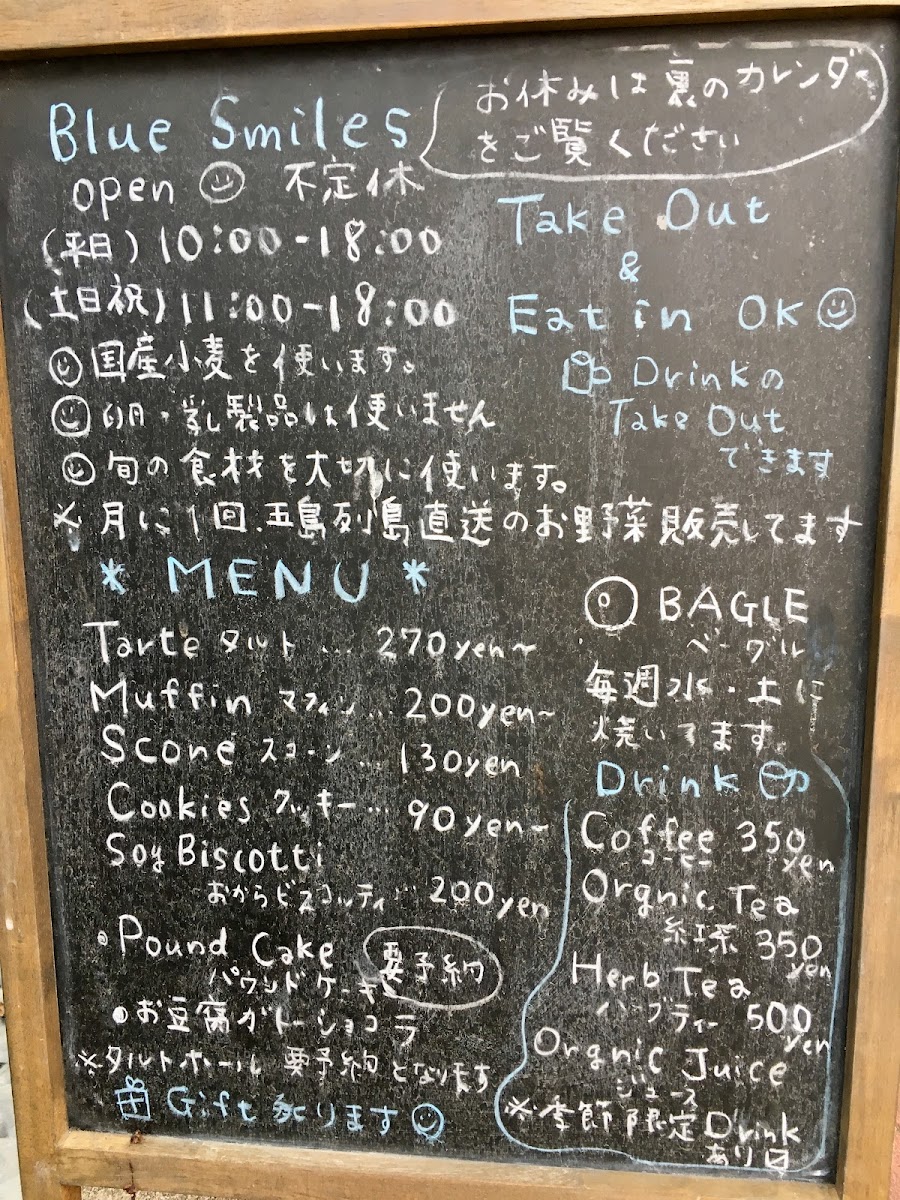 Blue Smiles
お休みは裏のカレンダー
をご覧ください
open 不定休
(平日) 10:00-18:00
(土日祝) 11:00-18:00
Take Out
&
Eat in OK
Drinkの
Take Out
できます
国産小麦を使います。
卵・乳製品は使いません
旬の食材を大切に使います。
※月に1回、五島列島直送のお野菜販売してます
* MENU *
Tarte タルト ... 270yen~
Muffin マフィン ... 200yen~
Scone スコーン ... 130yen
Cookies クッキー ... 90yen~
Soy Biscotti
おからビスコッティ ... 200yen
Pound Cake
パウンドケーキ
要予約
お豆腐ガトーショコラ
※タルトホール 要予約となります
Gift 承ります
BAGLE
ベーグル
毎週水・土に
焼いてます。
Drink
Coffee 350
コーヒー yen
Orgnic Tea
紅茶 350
yen
Herb Tea
ハーブティー 500
yen
Orgnic Juice
ジュース
※季節限定Drink
あり